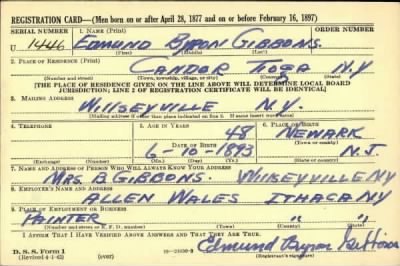 REGISTRATION CARD—(Men born on or after April 28, 1877 and on or before February 16, 1897)
SERIAL NUMBER 1. NAME (Print) ORDER NUMBER
U 1446 EDMUND BYRON GIBBONS
(First) (Middle) (Last)
2. PLACE OF RESIDENCE (Print)
CANDOR TIOGA N.Y
(Number and street) (Town, township, village, or city) (County) (State)
[THE PLACE OF RESIDENCE GIVEN ON THE LINE ABOVE WILL DETERMINE LOCAL BOARD
JURISDICTION; LINE 2 OF REGISTRATION CERTIFICATE WILL BE IDENTICAL]
3. MAILING ADDRESS
WILLSEYVILLE N.Y.
(Mailing address if other than place indicated on line 2. If same insert word same)
4. TELEPHONE 5. AGE IN YEARS 6. PLACE OF BIRTH
48 NEWARK
DATE OF BIRTH (Town or county)
6-10-1893 N.J.
(Exchange) (Number) (Mo.) (Day) (Yr.) (State or country)
7. NAME AND ADDRESS OF PERSON WHO WILL ALWAYS KNOW YOUR ADDRESS
MRS B. GIBBONS. WILLSEYVILLE NY
8. EMPLOYER'S NAME AND ADDRESS
ALLEN WALES ITHACA NY
9. PLACE OF EMPLOYMENT OR BUSINESS
PAINTER " "
(Number and street or R. F. D. number) (Town) (County) (State)
I AFFIRM THAT I HAVE VERIFIED ABOVE ANSWERS AND THAT THEY ARE TRUE.
Edmund Byron Gibbons
D. S. S. Form 1
(Revised 4-1-42) (over) (Registrant's signature)